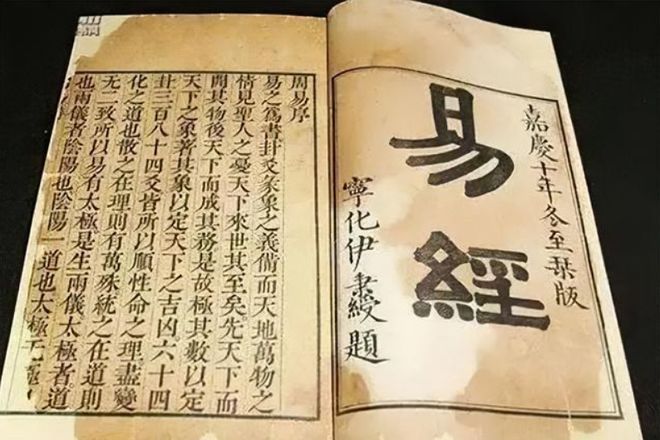 嘉慶十年冬至栞版
易經
寧化伊綬題
周易序
易之爲書卦爻彖象之義備而天地萬物之
情見聖人之憂天下來世其至矣。先天下而
開其物後天下而成其務是故極其數以定
天下之象著其象以定天下之吉凶六十四
卦三百八十四爻皆所以順性命之理盡變
化之道也散之在理則有萬殊統之在道則
无二致所以易有太極是生兩儀太極者。道
也兩儀者陰陽也陰陽一道也太極无極